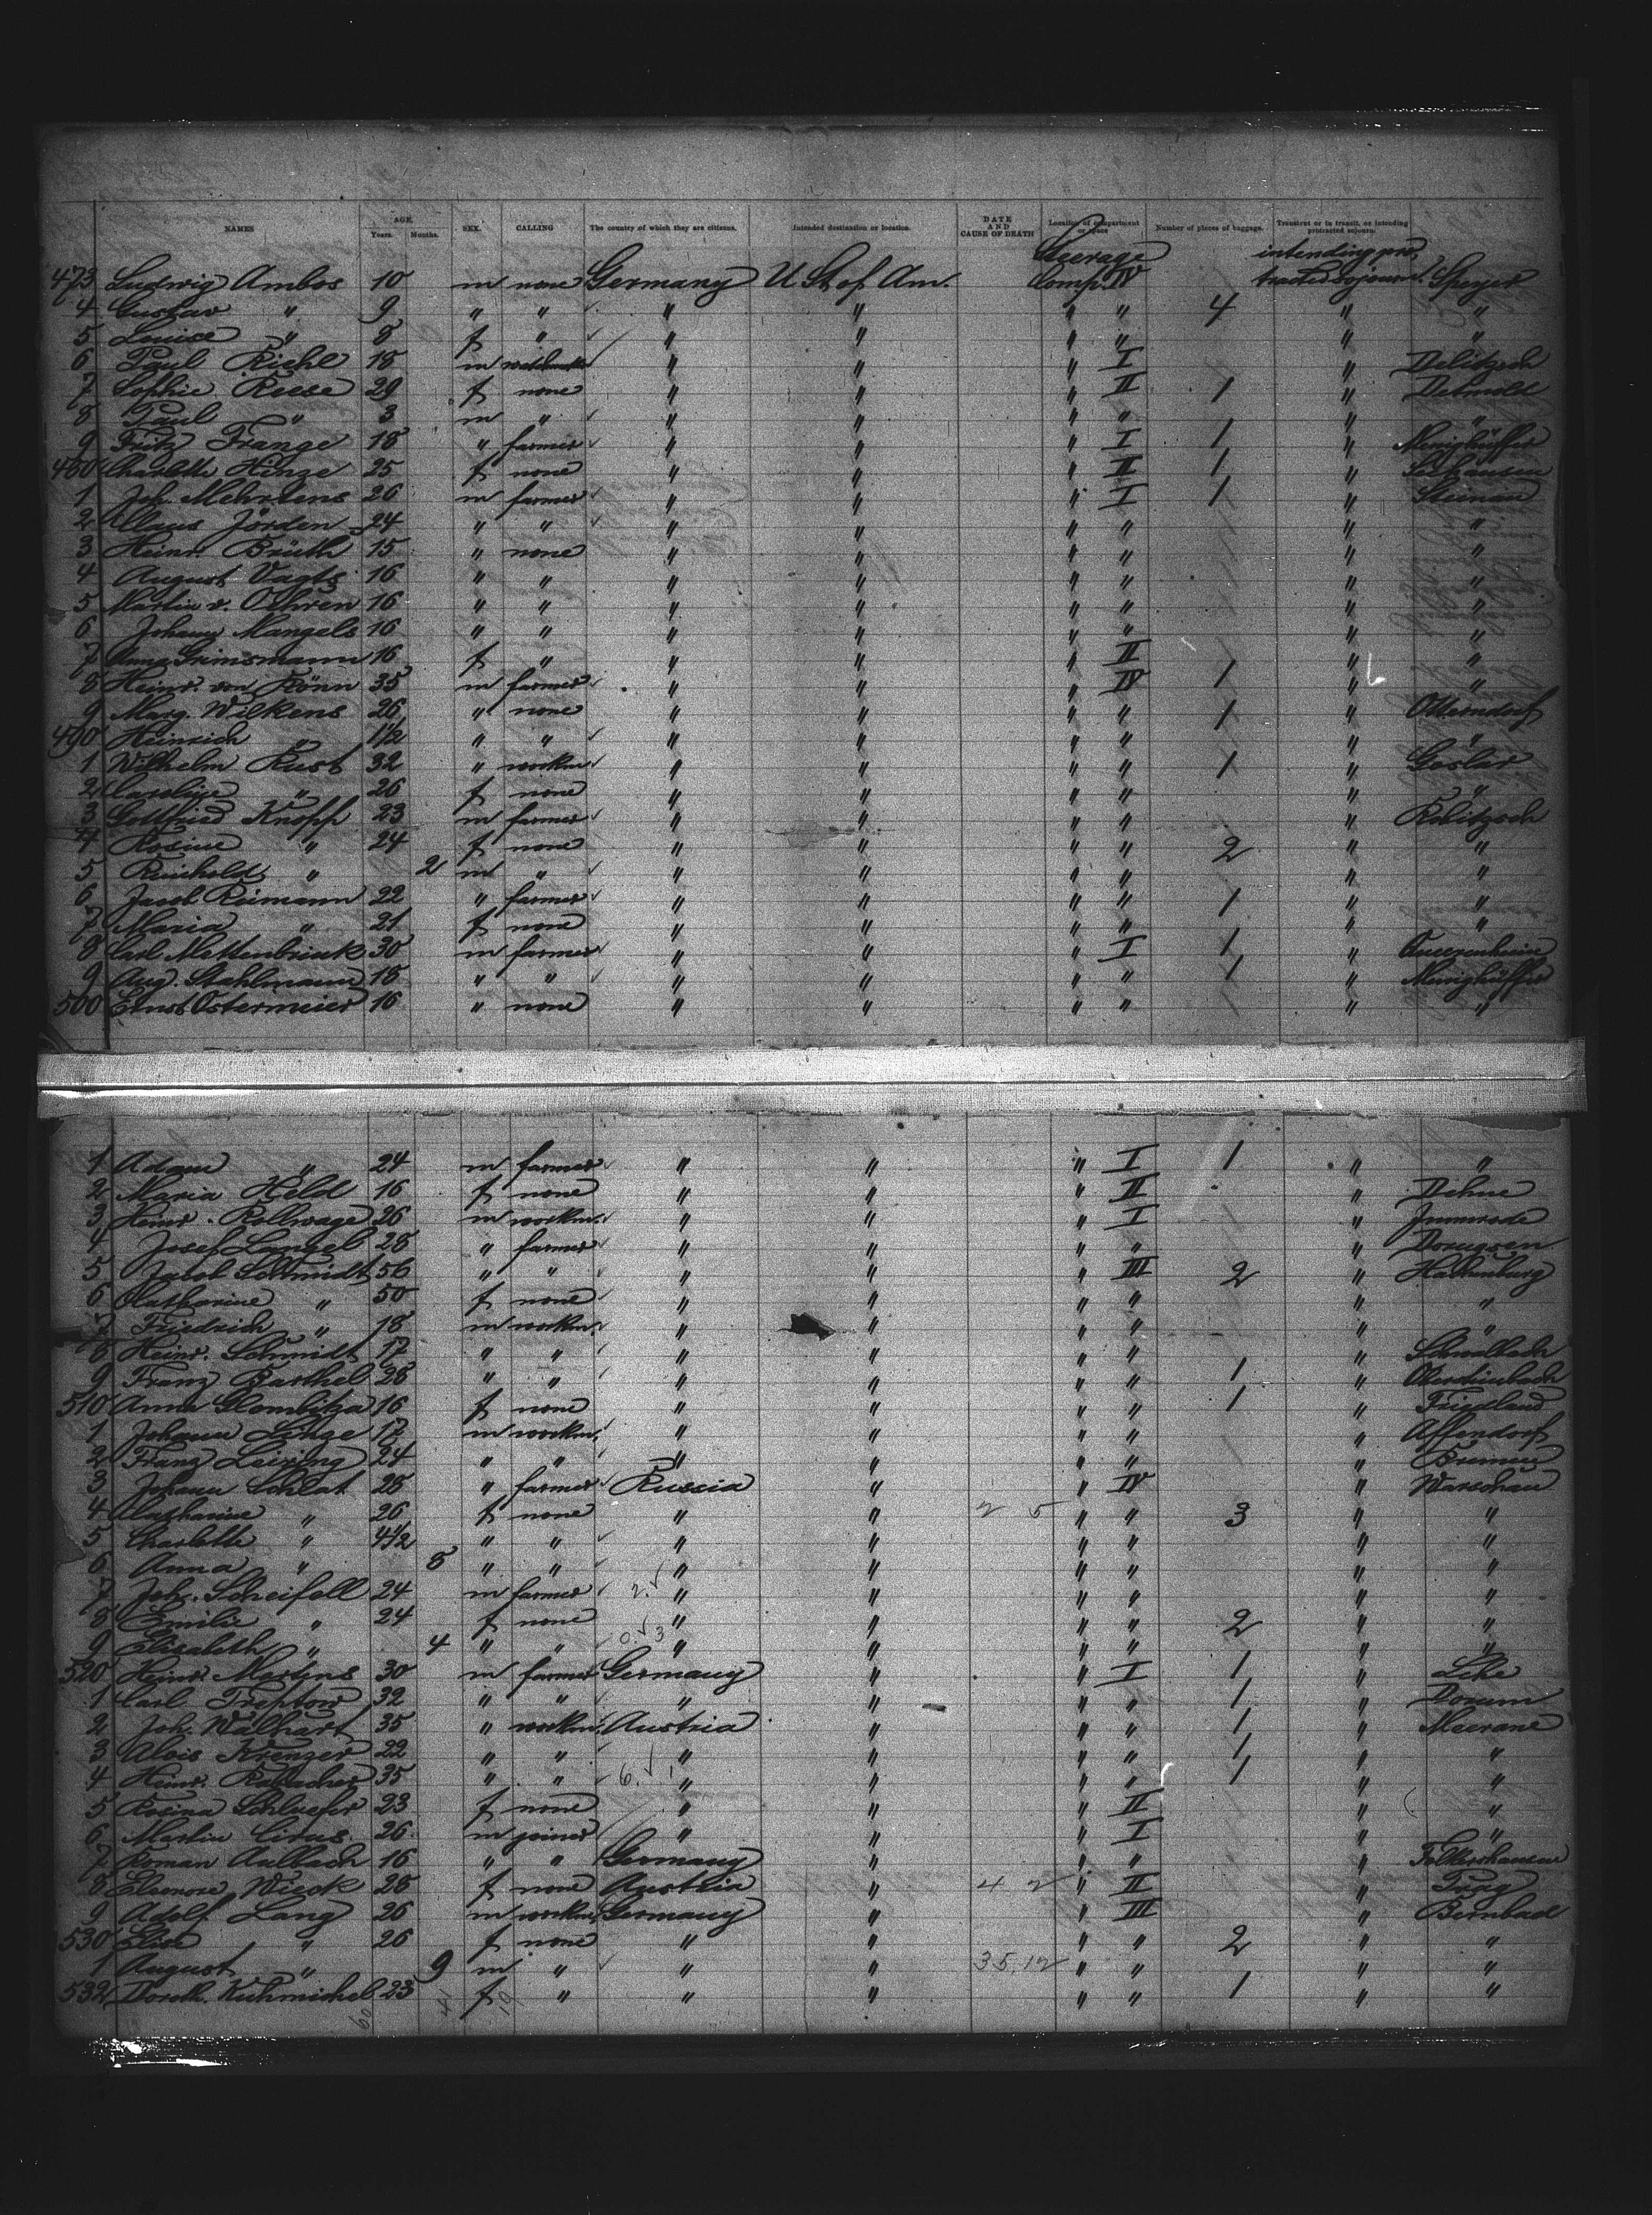 NAMES AGE. Years. Months. SEX. CALLING The country of which they are citizens. Intended destination or location. DATE AND CAUSE OF DEATH Location of compartment or space Number of pieces of baggage. Transient or in transit, or intending protracted sojourn.
473 Ludwig Ambos 10 m none Germany U St of Am. Steerage Comp. IV intending protracted sojourn. Speyer
4 Gustav " 9 " " " " " " 4 " "
5 Louise " 8 f " " " " " " "
6 Paul Richl 18 m " " " I " Delitzsch
7 Sophie Reese 29 f none " " " II 1 " Detmold
8 Paul " 3 m " " " " " " "
9 Fritz Frange 18 " farmer " " " I 1 " Mennighüffen
480 Charlotte Hinze 25 f none " " " II 1 " Seehausen
1 Joh. Mehrtens 26 m farmer " " " I 1 " Steinau
2 Claus Jörden 24 " " " " " " " "
3 Heinr. Brüth 15 " none " " " " " "
4 August Vagts 16 " " " " " " " "
5 Martin v. Oehren 16 " " " " " " " "
6 Johann Mangels 16 " " " " " " " "
7 Anna Grimsmann 16 f " " " " II " "
8 Heinr. von Rönn 35 m farmer " " " IV 1 " "
9 Marg. Wilkens 26 " none " " " " 1 " Otterndorf
490 Heinrich " 1 1/2 " " " " " " " "
1 Wilhelm Rust 32 " workm. " " " " 1 " Goslar
2 Caroline " 26 f none " " " " " "
3 Gottfried Knopf 23 m farmer " " " " " Rabitzsch
4 Rosine " 24 f none " " " " 2 " "
5 Reinhold " 2 m " " " " " " "
6 Jacob Reimann 22 " farmer " " " " 1 " "
7 Maria " 21 f none " " " " " "
8 Carl Mettenbrink 30 m farmer " " " I 1 "
9 Aug. Stahlmann 18 " " " " " " 1 " Mennighüffen
500 Ernst Ostermeier 16 " none " " " " " "
1 Adam " 24 m farmer " " " I 1 " "
2 Maria Held 16 f none " " " II " Dehme
3 Heinr. Rollwage 26 m workm. " " " I " Immrode
4 Josef Langel 28 " farmer " " " " "
5 Jacob Schmidt 56 " " " " " III 2 " Hachenburg
6 Catharine " 50 f none " " " " " "
7 Friedrich " 18 m workm. " " " " " "
8 Heinr. Schmidt 17 " " " " " " " Schwalbach
9 Franz Barthel 28 " " " " " " 1 "
510 Anna Glombitza 16 f none " " " " 1 " Friedland
1 Johann Linge 17 m workm. " " " " " Affendorf
2 Franz Leiring 24 " " " " " " " Bremen
3 Johann Schlat 28 " farmer Russia " " IV " Warschau
4 Catharine " 26 f none " " 2 5 " " 3 " "
5 Charlotte " 4 1/2 " " " " " " " "
6 Anna " 8 " " " " " " " "
7 Joh. Scheifell 24 m farmer " " " " " "
8 Emilie " 24 f none " " " " 2 " "
9 Elisabeth " 4 " " " " " " " "
520 Heinr. Mertens 30 m farmer Germany " " I 1 " Lehe
1 Carl Treptow 32 " " " " " " 1 " Dorum
2 Joh. Walhart 35 " workm. Austria " " " 1 " Meerane
3 Alois Krenzer 22 " " " " " " 1 " "
4 Heinr. Rabacher 35 " " " " " " 1 " "
5 Rosina Schluefer 23 f none " " " II " "
6 Martin Cirus 26 m joiner " " " I " "
7 Roman Aulbach 16 " " Germany " " " "
8 Eleonore Wieck 28 f none Austria " 4 2 " II "
9 Adolf Lang 26 m workm. Germany " " III " Bernbad
530 Elise " 26 f none " " " " 2 " "
1 August " 9 m " " " 35.12 " " " "
532 Doroth. Kuhmichel 23 f " " " " " 1 " "